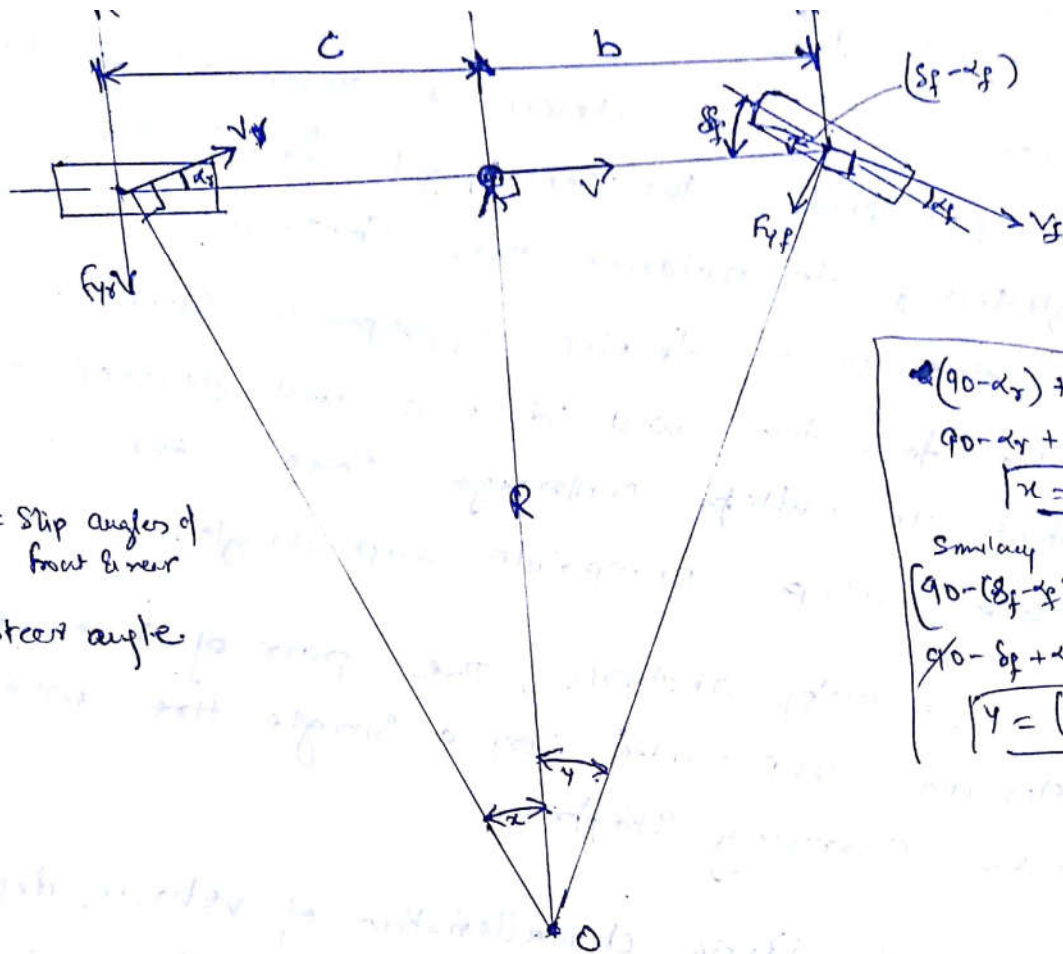 C
b
(δf - αf)
δf
Vr
αr
V
αf
Vf
Fyf
Fyr
R
= Slip angles of
front & rear
steer angle.
(90-αr) +
90-αr +
x =
Similarly
[90-(δf-αf)
90-δf+α
y = (
x
y
O